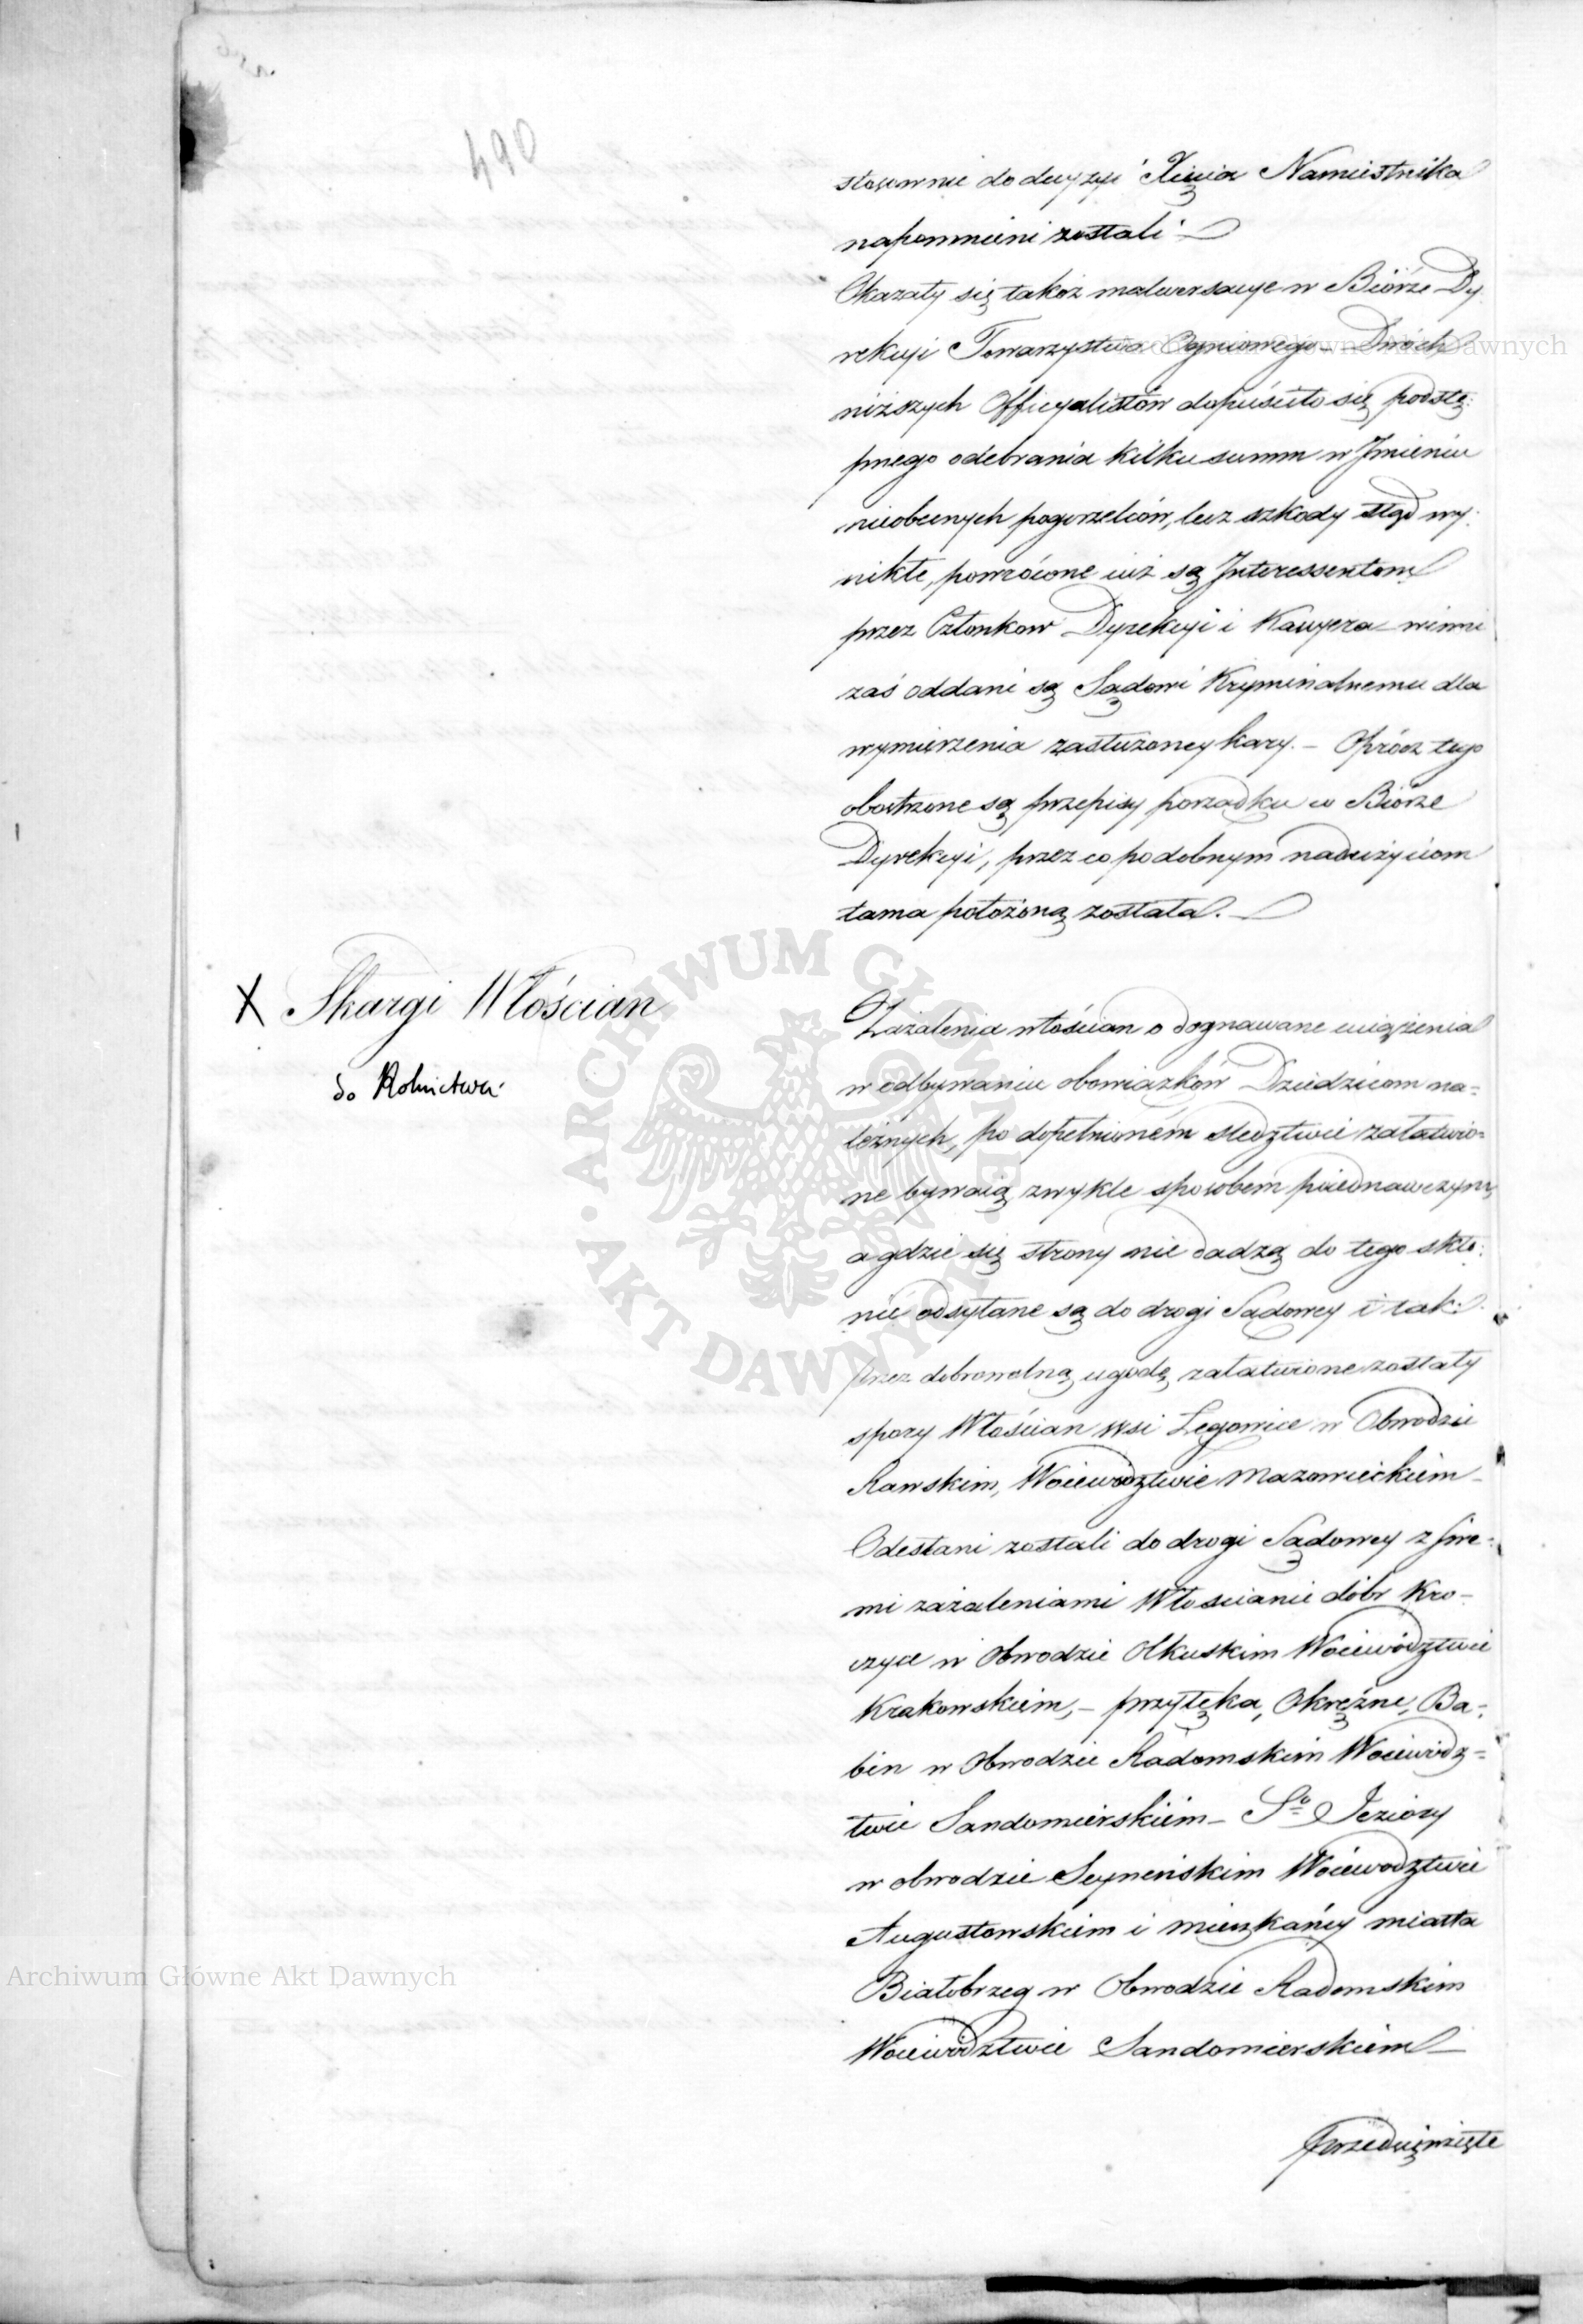 490
stosownie do decyzyi Xięcia Namiestnika
napomnieni zostali
Okazały się takoż malwersacye w Biórze Dy
rekcyi Towarzystwa Ogniowego – Dwóch
niższych Officyalistów dopuściło się podstę:
pnego odebrania kilku summ w Jmieniu
nieobecnych pogorzelców, lecz szkody stąd wy:
nikłe, powrócone iuż są Jnteressentom
przez Członkow Dyrekcyi i Kassyera – winni
zaś oddani są Sądowi Kryminalnemu dla
wymierzenia zasłużoney kary. – Oprócz tego
obostrzone są przepisy porządku w Biórze
Dyrekcyi, przez co podobnym nadużyciom
tama położoną została.
X Skargi Włościan
do Rolnictwa
Zażalenia włościan o doznawane uciążenia
w odbywaniu obowiązków Dziedzicom na=
leżnych, po dopełnioném śledztwie załatwio=
ne bywaią zwykle sposobem poiednawczym,
a gdzie się strony nie dadzą do tego skło:
nić odsyłane są do drogi Sądowey i tak:
przez dobrowolną ugodę załatwione zostały
spory Włościan wsi Łegonice w Obwodzie
Rawskim, Woiewództwie Mazowieckiem –
Odesłani zostali do drogi Sądowey z swe=
mi zażaleniami Włościanie dóbr Kro-
czyce w Obwodzie Olkuskim Woiewództwie
Krakowskiem, – Przyłęka, Okrężne, Ba=
bin w Obwodzie Radomskim Woiewódz=
twie Sandomierskiém – Sto Jeziory
w obwodzie Seyneńskim Woiewództwie
Augustowskiem i mieszkańcy miasta
Białobrzeg w Obwodzie Radomskim
Woiewództwie Sandomierskiem –
Przedsięwzięte
ARCHIWUM GŁÓWNE AKT DAWNYCH
Archiwum Główne Akt Dawnych
Archiwum Główne Akt Dawnych